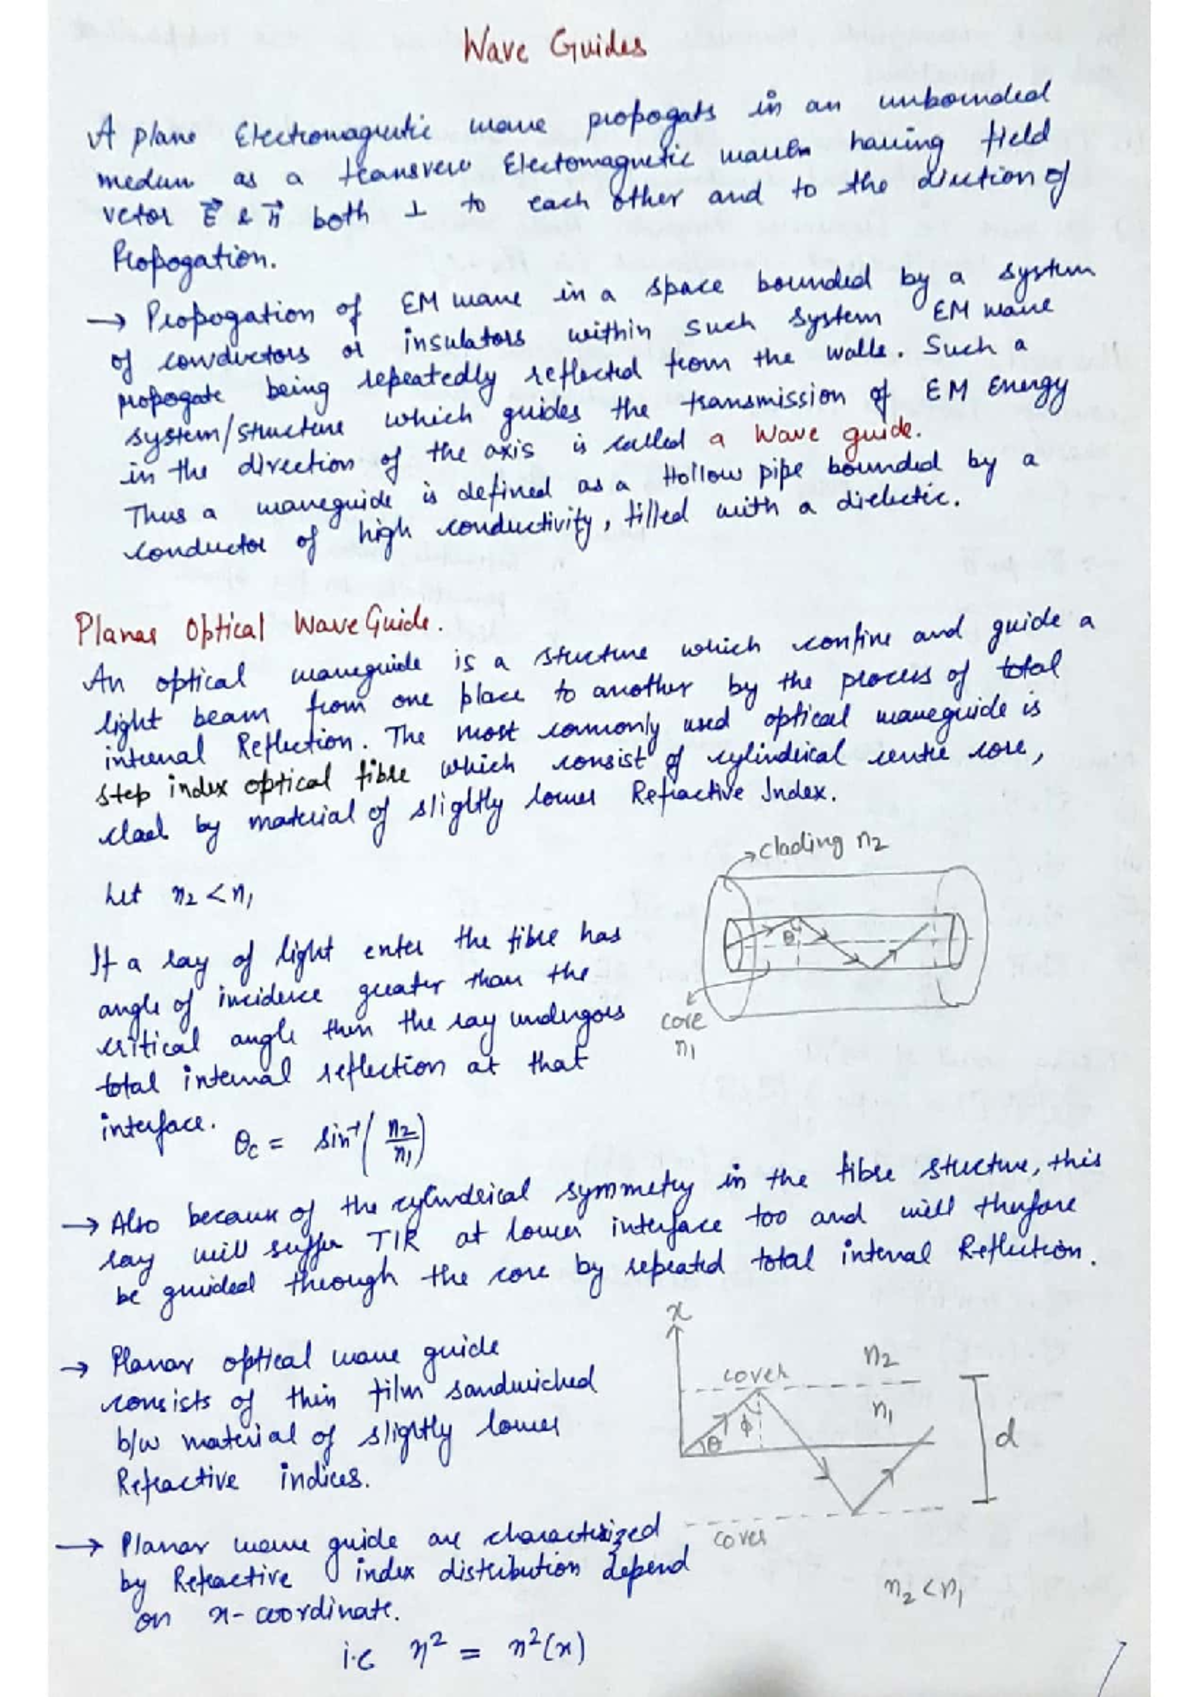 Wave Guides
A plane Electromagnetic wave propogats in an unbounded
medum as a transvere Electomagnetic waves having field
vetor E⃗ & H⃗ both ⊥ to each other and to the direction of
Propogation.
→ Propogation of EM wave in a space bounded by a system
of conductors or insulators within such system EM wave
propogate being repeatedly reflected from the walls. Such a
system/structure which guides the transmission of EM Energy
in the direction of the axis is called a Wave guide.
Thus a waveguide is defined as a Hollow pipe bounded by a
conductor of high conductivity, filled with a dielectic.
Planar Optical Wave Guide.
An optical waveguide is a structure which confine and guide a
light beam from one place to another by the process of total
internal Reflection. The most commonly used optical waveguide is
step index optical fibre which consist of cylindrical centre core,
clad by material of slightly lower Refractive Index.
→ clading n2
Let n2 < n1
If a ray of light enter the fibre has
angle of incidence greater than the
critical angle then the ray undergoes
total internal reflection at that
interface.
θ
core
n1
θc = sin⁻¹(n2/n1)
→ Also because of the cylinderical symmetry in the fibre structure, this
ray will suffer TIR at lower interface too and will therfore
be guided through the core by repeated total internal Reflection.
→ Planar optical wave guide
consists of thin film sandwiched
b/w material of slightly lower
Refractive indices.
x
cover n2
n1
θ φ
d
cover
n2 < n1
→ Planar wave guide are charactrized
by Refractive index distribution depend
on x-coordinate.
i.e n² = n²(x)